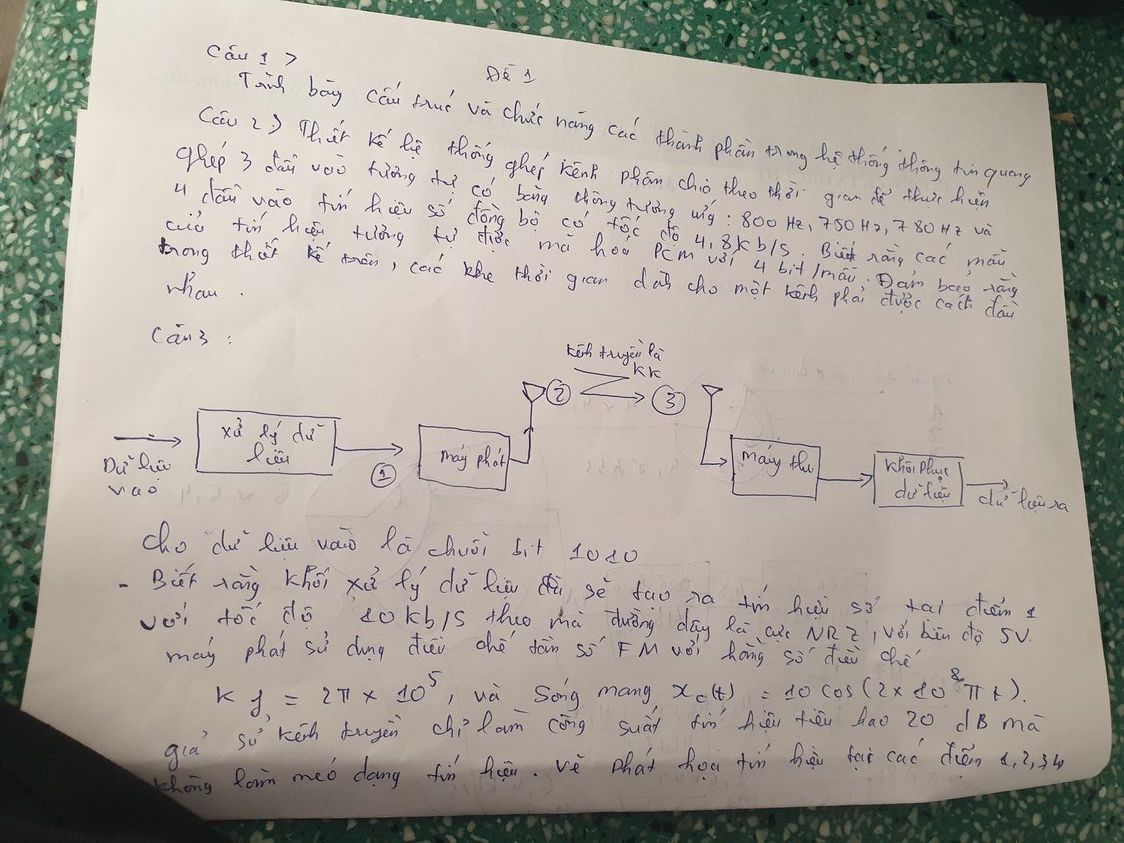 Câu 1 >
Đề 1
Trình bày cấu trúc và chức năng các thành phần trong hệ thống thông tin quang
Câu 2 > Thiết kế hệ thống ghép kênh phân chia theo thời gian để thực hiện
ghép 3 đầu vào tương tự có băng thông tương ứng : 800 Hz, 750 Hz, 780 Hz và
4 đầu vào tín hiệu số đồng bộ có tốc độ 4,8 kb/s. Biết rằng các mẫu
của tín hiệu tương tự được mã hoá PCM với 4 bit/mẫu. Đảm bảo rằng
trong thiết kế trên, các khe thời gian dành cho một kênh phải được cách đều
nhau .
Câu 3 :
kênh truyền là
KK
2
3
xử lý dữ
liệu
máy phát
máy thu
khôi phục
dữ liệu
Dữ liệu
vào
1
dữ liệu ra
Cho dữ liệu vào là chuỗi bit 1010
- Biết rằng khối xử lý dữ liệu sẽ tạo ra tín hiệu số tại điểm 1
với tốc độ 10 kb/s theo mã đường dây là cực NRZ, với biên độ 5V.
máy phát sử dụng điều chế tần số FM với hằng số điều chế
kf = 2π × 10⁵, và sóng mang xc(t) = 10 cos (2 × 10⁸ π t).
giả sử kênh truyền chỉ làm công suất tín hiệu tiêu hao 20 dB mà
không làm méo dạng tín hiệu. vẽ phát họa tín hiệu tại các điểm 1,2,3,4